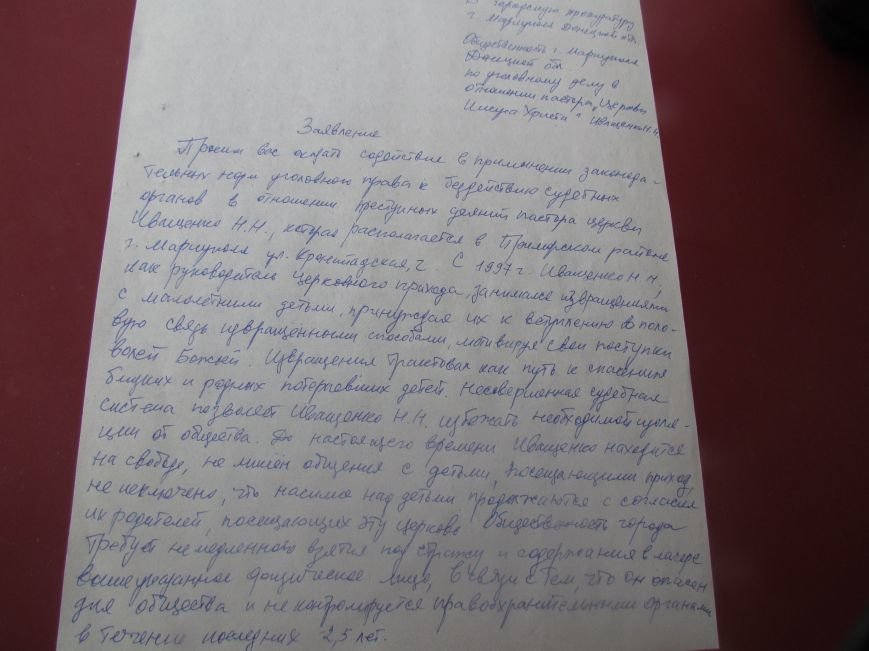 В городскую прокуратуру
г. Мариуполя Донецкой обл.
Общественность г. Мариуполя
Донецкой обл.
по уголовному делу в
отношении пастора Церкви
Иисуса Христа г. Иващенко Н.Н.
Заявление
Просим вас оказать содействие в применении законода-
тельных норм уголовного права к бездействию судебных
органов в отношении преступных деяний пастора церкви
Иващенко Н.Н., которая располагается в Приморском районе
г. Мариуполя ул. Кронштадская, 2 С 1997 г. Иващенко Н.Н.,
как руководитель церковного прихода, занимался извращениями
с малолетними детьми, принуждая их к вступлению в поло-
вую связь извращёнными способами, мотивируя свои поступки
волей Божьей. Извращения трактовал как путь к спасению
близких и родных потерпевших детей. Несовершенная судебная
система позволяет Иващенко Н.Н. избежать необходимой изоля-
ции от общества. До настоящего времени Иващенко находится
на свободе, не лишён общения с детьми, посещающими приход,
не исключено, что насилие над детьми продолжаются с согласия
их родителей, посещающих эту церковь. Общественность города
требует немедленного взятия под стражу и содержания в лагере
вышеуказанное физическое лицо, в связи с тем, что он опасен
для общества и не контролируется правоохранительными органами
в течение последних 2,5 лет.